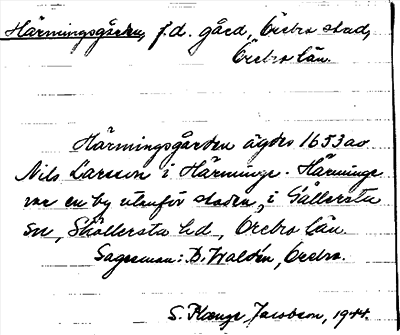 Härmingsgården, f.d. gård, Örebro stad,
Örebro län.
Härmingsgården ägdes 1653 av
Nils Larsson i Härminge. Härminge
var en by utanför staden, i Gällersta
sn, Sköllersta hd, Örebro län.
Sagesman: B. Waldén, Örebro.
S. Jacobson, 1944.